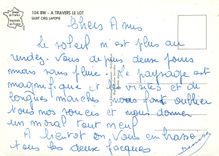 104 BW - A TRAVERS LE LOT
SAINT CIRQ LAPOPIE
Chers Amis
Le soleil n'est plus au
rendez-vous de plus deux jours
mais sans pluie. Le paysage est
magnifique et les visites et de
longues marches nous font oublier
tous nos soucis et nous donner
un moral tout neuf
A bientôt on vous embrasse
tous les deux Jacques